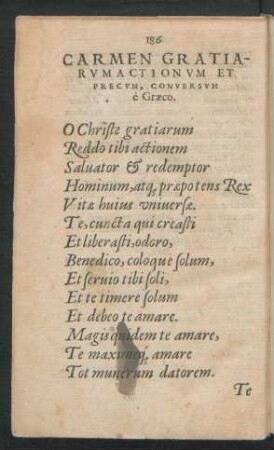 186
CARMEN GRATIA-
RVM ACTIONVM ET
PRECVM, CONVERSVM
è Græco.
O Christe gratiarum
Reddo tibi actionem
Saluator & redemptor
Hominum, atq, præpotens Rex
Vitæ huius vniuersæ.
Te, cuncta qui creasti
Et liberasti, odoro,
Benedico, coloque solum,
Et seruio tibi soli,
Et te timere solum
Et debeo te amare.
Magis quidem te amare,
Te maximeq, amare
Tot munerum datorem.
Te